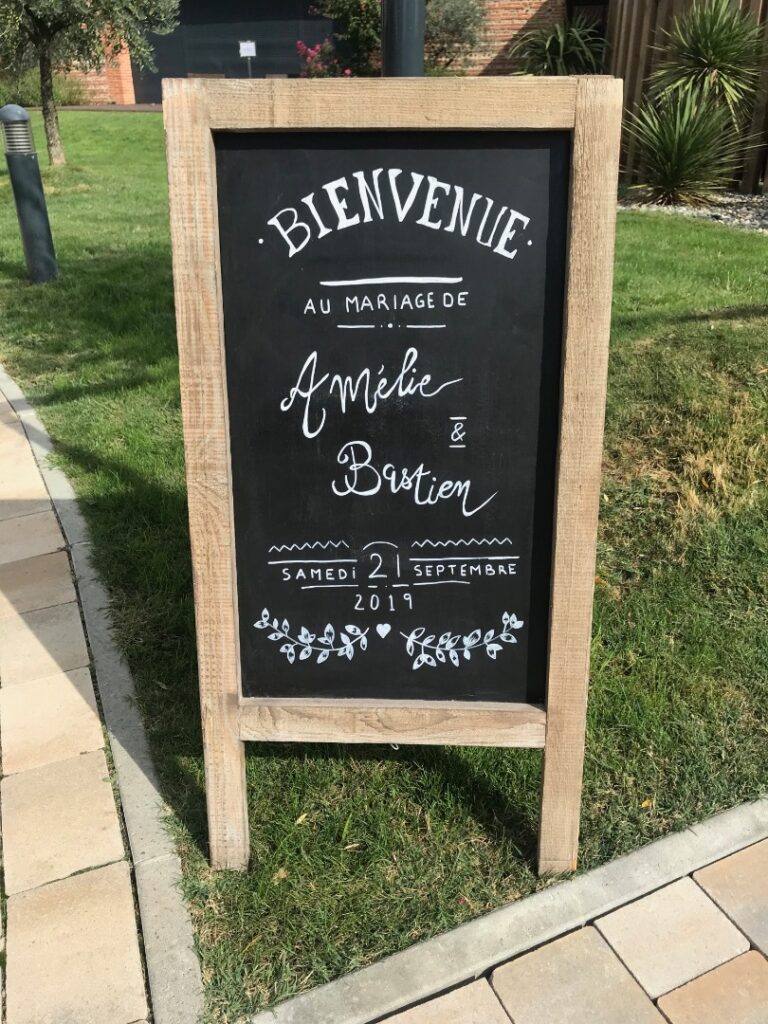 BIENVENUE
AU MARIAGE DE
Amélie
&
Bastien
SAMEDI 21 SEPTEMBRE
2019